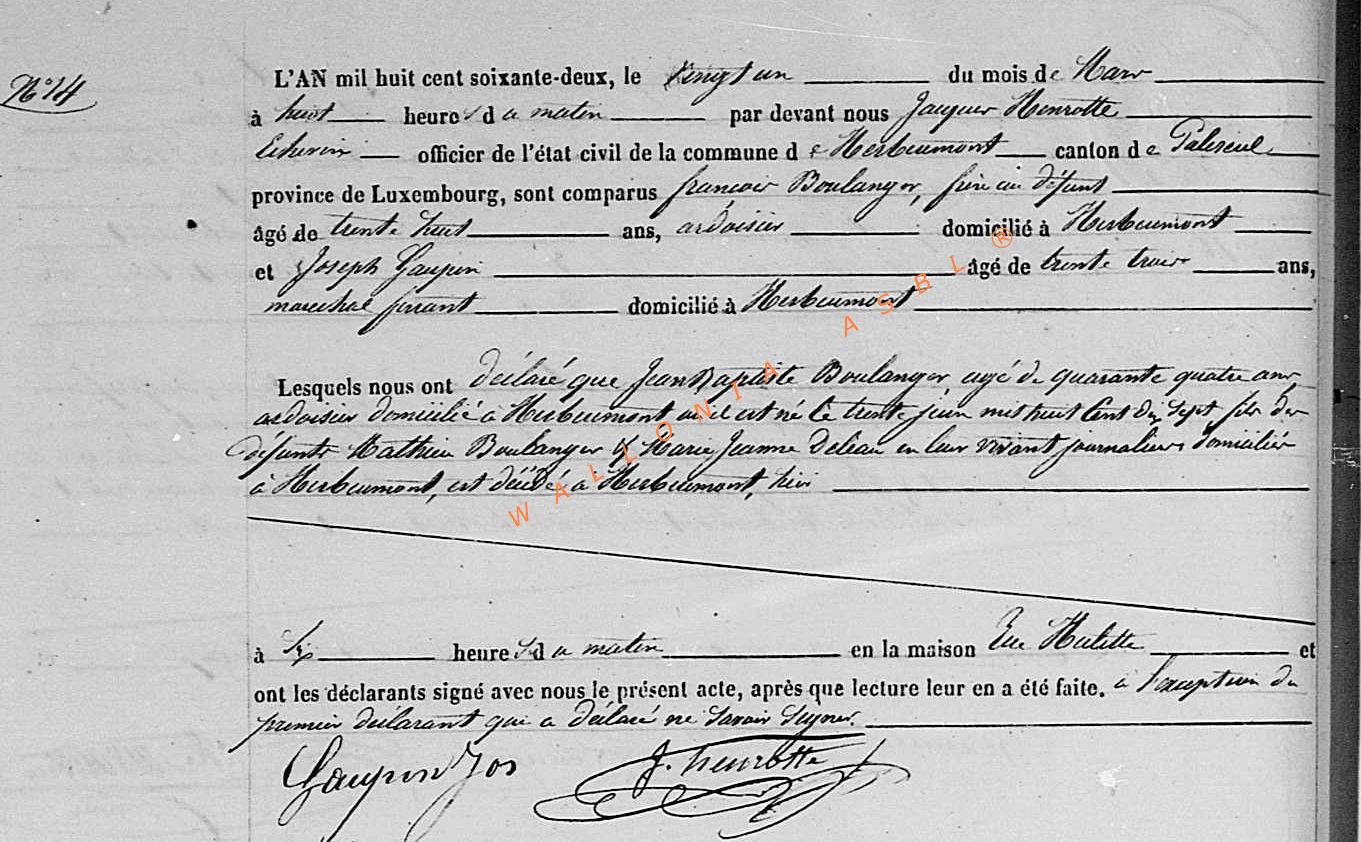 N° 14
L'AN mil huit cent soixante-deux, le vingt un du mois de Mars
à huit heures du matin par devant nous Jacques Henrotte
Echevin officier de l'état civil de la commune de Herbeumont canton de Paliseul
province de Luxembourg, sont comparus françois Boulanger, frère au défunt
âgé de trente huit ans, ardoisier domicilié à Herbeumont
et Joseph Gaupin âgé de trente trois ans,
marechal ferrant domicilié à Herbeumont
Lesquels nous ont déclaré que Jean Baptiste Boulanger, agé de quarante quatre ans,
ardoisier domicilié à Herbeumont où il est né le trente juin mil huit Cent dix Sept fils des
défunts Mathieu Boulanger & Marie Jeanne Deleau en leur vivant journaliers domiciliés
à Herbeumont, est décédé à Herbeumont, hier
à Six heures du matin en la maison Rue Hulette et
ont les déclarants signé avec nous le présent acte, après que lecture leur en a été faite. à l'exception du
premier déclarant qui a déclaré ne Savoir Signer.
Gaupin Jos J. henrotte
WALLONIA ASBL ®